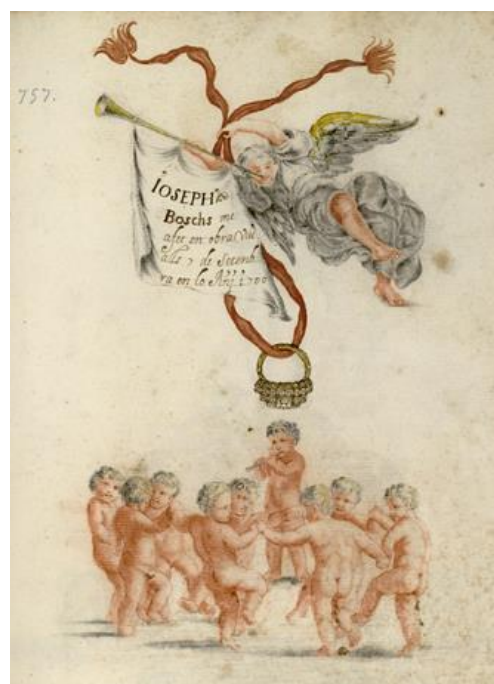 757.
IOSEPH
Boschs me
afet en obra
als 7 de Setemb
ra en lo Añy 1700